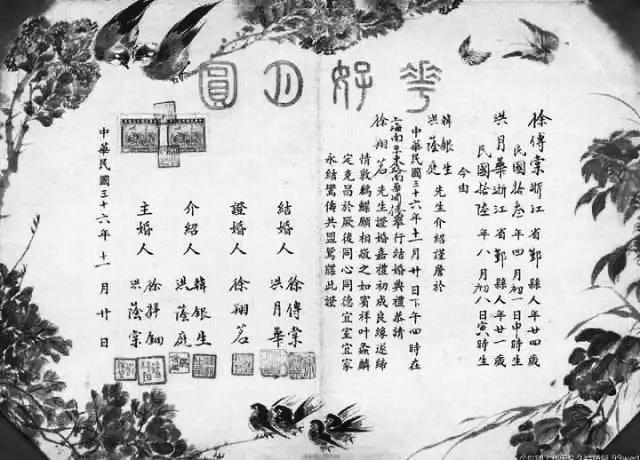 花好月圓
徐傳棠浙江省鄞縣人年廿四歲
民國拾叁年四月初一日申時生
洪月華浙江省鄞縣人年廿一歲
民國拾陸年八月初八日寅時生
今由
韓銀生
洪蔭庭
先生介紹謹詹於
中華民國三十六年十一月廿日下午四時在
上海南京東路南華酒樓舉行結婚典禮恭請
徐翔茗先生證婚嘉禮初成良緣遂締
情敦鶼鰈願相敬之如賓祥叶螽麟
定克昌於厥後同心同德宜室宜家
永結鸞儔共盟鴛牒此證
結婚人
徐傳棠
洪月華
證婚人
徐翔茗
介紹人
韓銀生
洪蔭庭
主婚人
洪蔭棠
中華民國三十六年十一月廿日